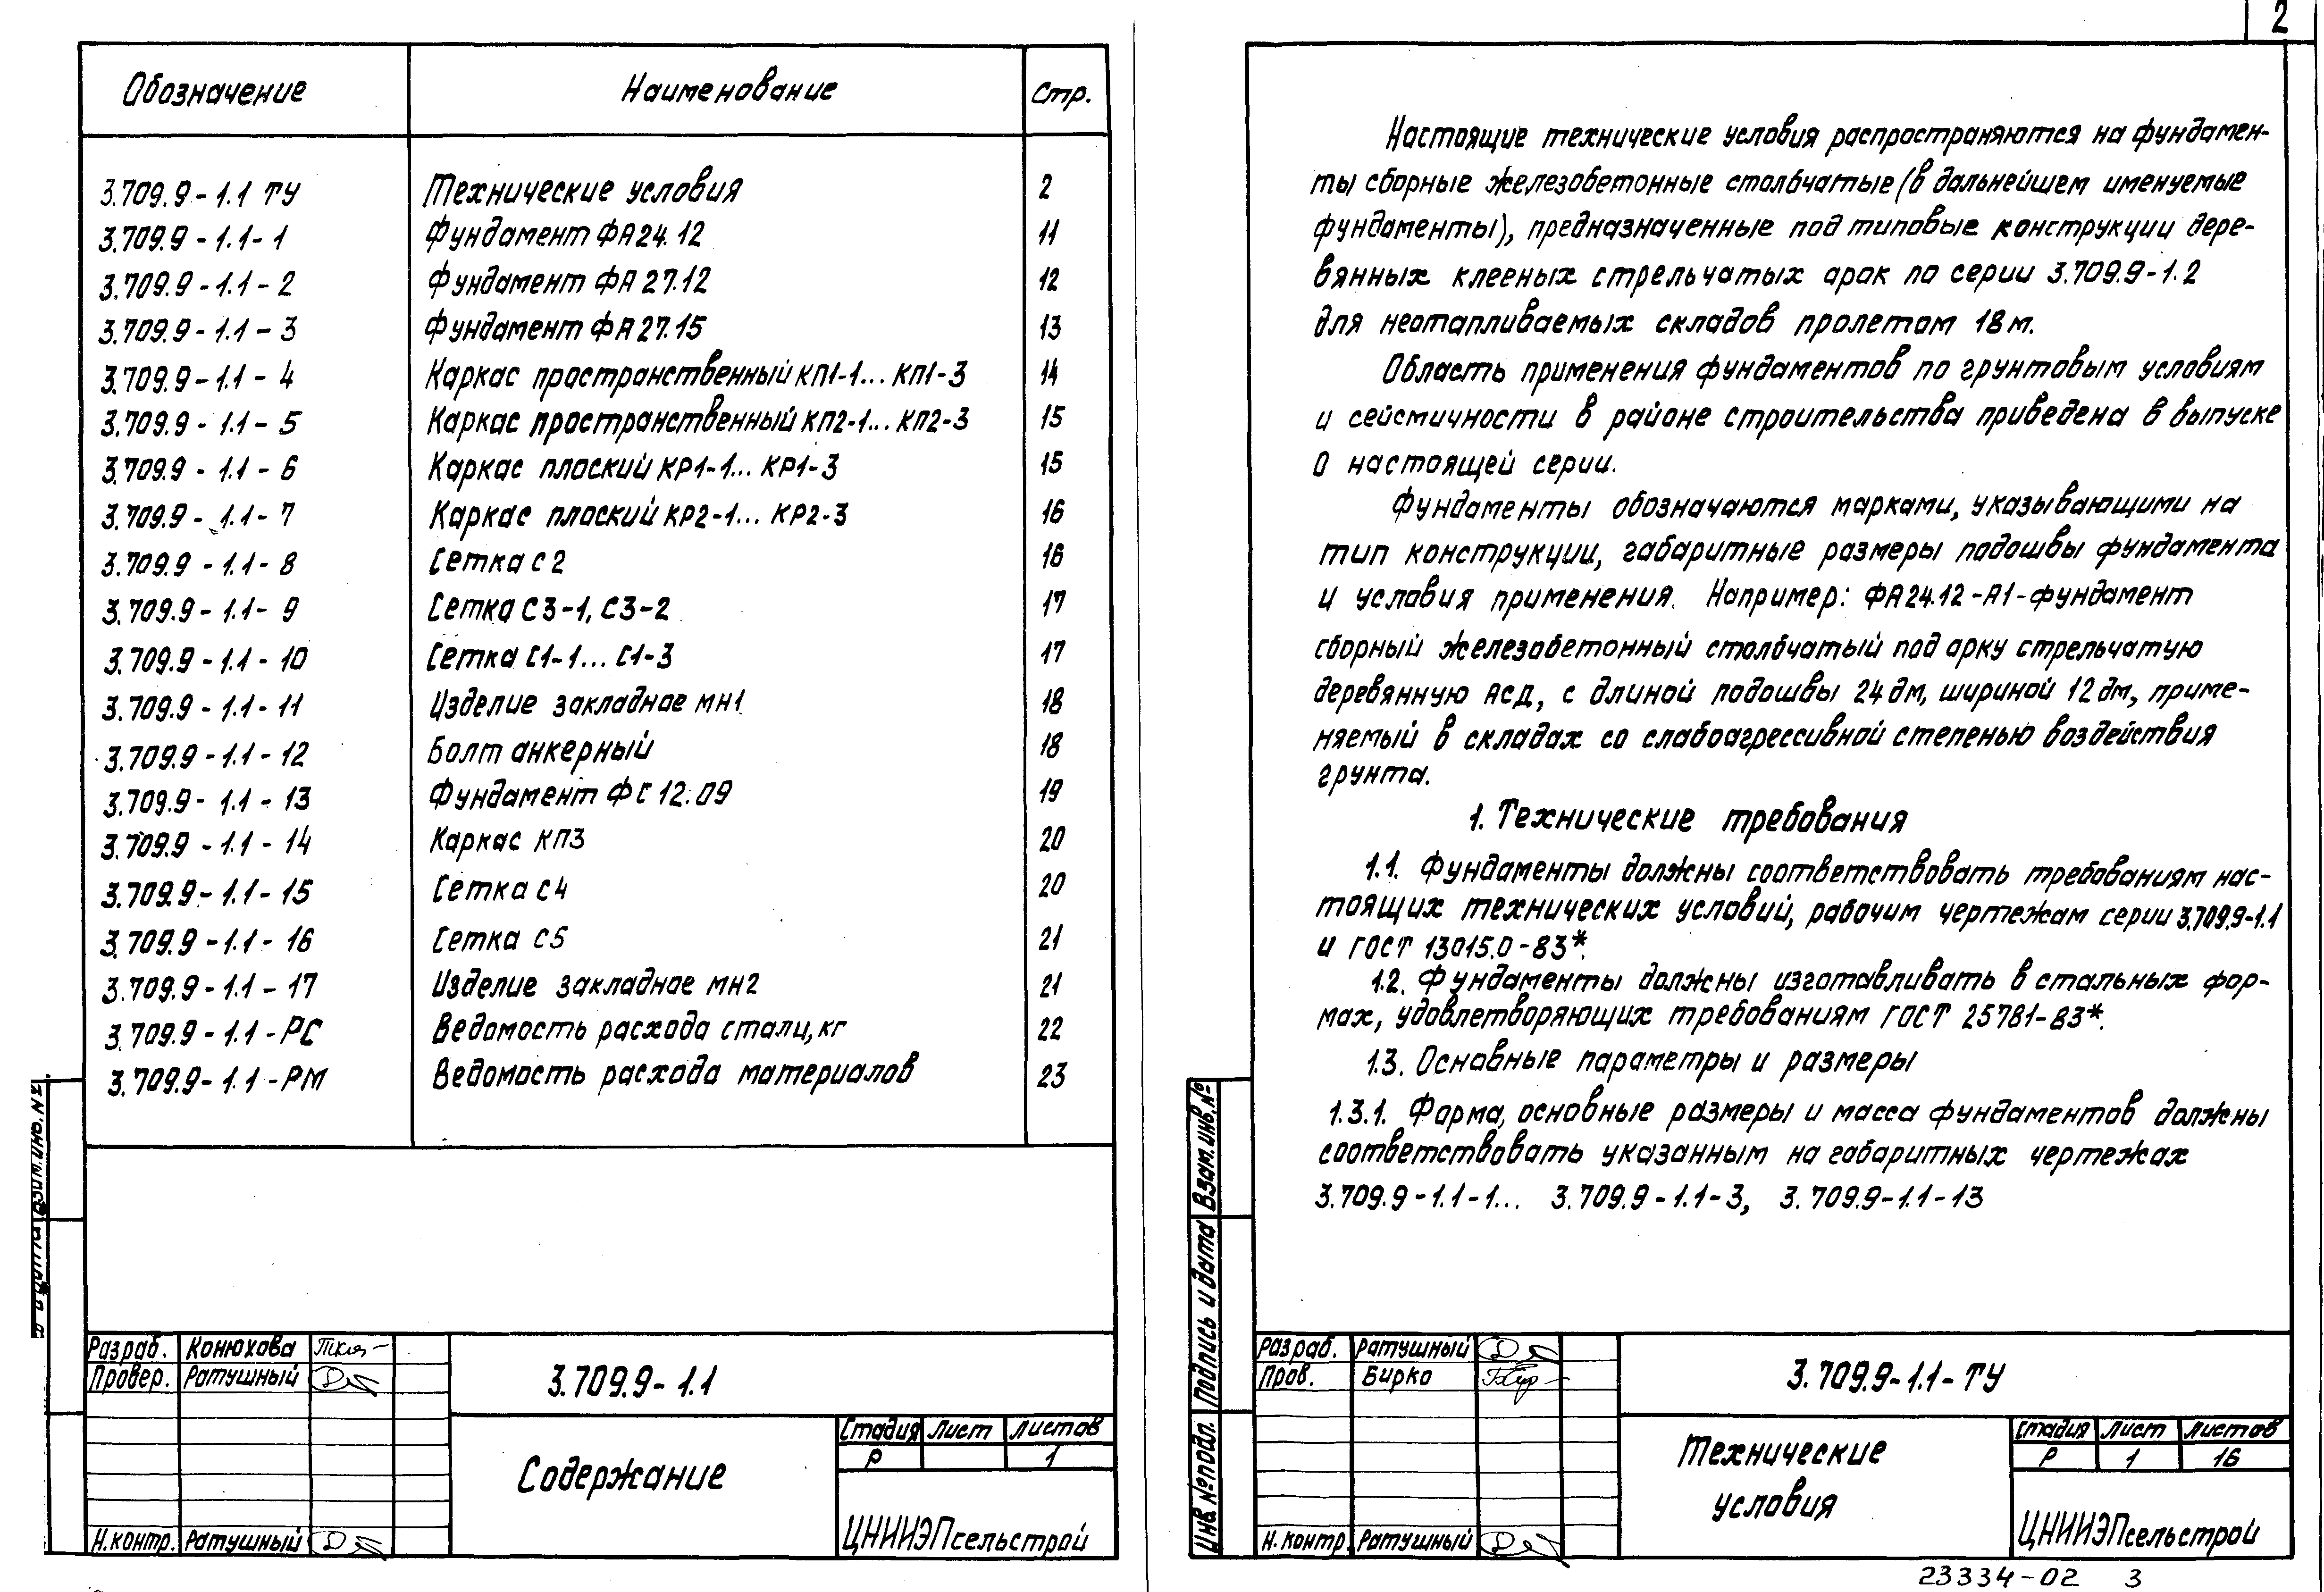 Обозначение Наименование Стр.
3.709.9-1.1 ТУ Технические условия 2
3.709.9-1.1-1 Фундамент ФА24.12 11
3.709.9-1.1-2 Фундамент ФА27.12 12
3.709.9-1.1-3 Фундамент ФА27.15 13
3.709.9-1.1-4 Каркас пространственный КП1-1... КП1-3 14
3.709.9-1.1-5 Каркас пространственный КП2-1... КП2-3 15
3.709.9-1.1-6 Каркас плоский КР1-1... КР1-3 15
3.709.9-1.1-7 Каркас плоский КР2-1... КР2-3 16
3.709.9-1.1-8 Сетка С2 16
3.709.9-1.1-9 Сетка С3-1, С3-2 17
3.709.9-1.1-10 Сетка С1-1... С1-3 17
3.709.9-1.1-11 Изделие закладное МН1 18
3.709.9-1.1-12 Болт анкерный 18
3.709.9-1.1-13 Фундамент ФС 12.09 19
3.709.9-1.1-14 Каркас КП3 20
3.709.9-1.1-15 Сетка С4 20
3.709.9-1.1-16 Сетка С5 21
3.709.9-1.1-17 Изделие закладное МН2 21
3.709.9-1.1-РС Ведомость расхода стали, кг 22
3.709.9-1.1-РМ Ведомость расхода материалов 23
Разраб. Конюхова
Провер. Ратушный
3.709.9-1.1
Содержание
Стадия Лист Листов
Р 1
Н.контр. Ратушный
ЦНИИЭПсельстрой
2
Настоящие технические условия распространяются на фундамен-
ты сборные железобетонные столбчатые (в дальнейшем именуемые
фундаменты), предназначенные под типовые конструкции дере-
вянных клееных стрельчатых арок по серии 3.709.9-1.2
для неотапливаемых складов пролетом 18 м.
Область применения фундаментов по грунтовым условиям
и сейсмичности в районе строительства приведена в выпуске
0 настоящей серии.
Фундаменты обозначаются марками, указывающими на
тип конструкции, габаритные размеры подошвы фундамента
и условия применения. Например: ФА24.12-А1-фундамент
сборный железобетонный столбчатый под арку стрельчатую
деревянную АСД, с длиной подошвы 24 дм, шириной 12 дм, приме-
няемый в складах со слабоагрессивной степенью воздействия
грунта.
1. Технические требования
1.1. Фундаменты должны соответствовать требованиям нас-
тоящих технических условий, рабочим чертежам серии 3.709.9-1.1
и ГОСТ 13015.0-83*.
1.2. Фундаменты должны изготавливать в стальных фор-
мах, удовлетворяющих требованиям ГОСТ 25781-83*.
1.3. Основные параметры и размеры
1.3.1. Форма, основные размеры и масса фундаментов должны
соответствовать указанным на габаритных чертежах
3.709.9-1.1-1... 3.709.9-1.1-3, 3.709.9-1.1-13
Взам. инв. №
Подпись и дата
Инв. № подл.
Разраб. Ратушный
Пров. Бирко
3.709.9-1.1-ТУ
Технические
условия
Стадия Лист Листов
Р 1 16
Н. контр. Ратушный
ЦНИИЭПсельстрой
23334-02 3